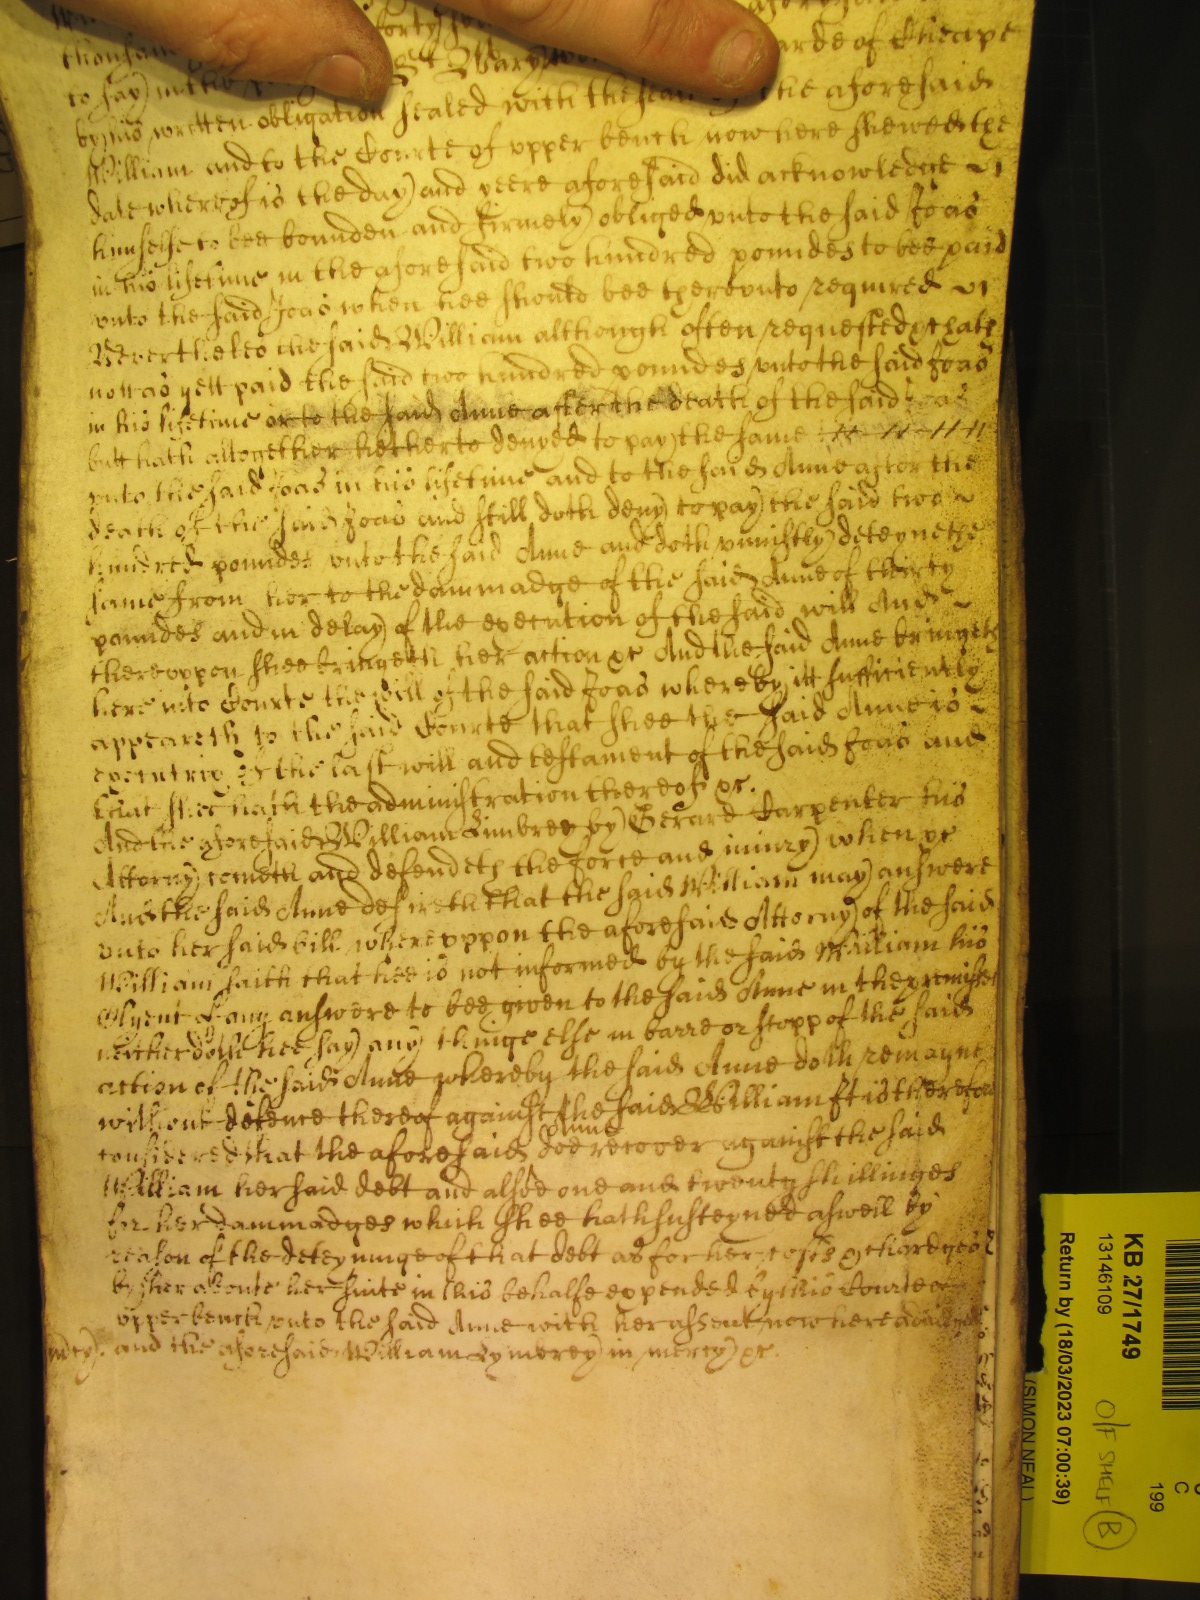 thousand forty
to say in the St Mary warde of Cheape
by his written obligation sealed with the seale the aforesaid
William and to the Courte of upper bench now here shewed the
date whereof is the day and yeere aforesaid did acknowledge
himselfe to bee bounden and firmely obliged unto the said Joas
in his lifetime in the aforesaid two hundred poundes to bee paid
unto the said Joas when hee should bee thereunto required
Nevertheles the said William although often requested hath
nott as yett paid the said two hundred poundes unto the said Joas
in his lifetime or to the said Anne after the death of the said Joas
butt hath altogether hetherto denyed to pay the same
unto the said Joas in his lifetime and to the said Anne after the
death of the said Joas and still doth deny to pay the said two
hundred poundes unto the said Anne and doth uniustly deteyne the
same from her to the dammadge of the said Anne of thirty
poundes and in delay of the execution of the said will And
thereuppon shee bringeth her action &c And the said Anne bringeth
here into Courte the will of the said Joas whereby itt sufficiently
appeareth to the said Courte that shee the said Anne is
executrix of the last will and testament of the said Joas and
that shee hath the administration thereof &c.
And the aforesaid William Limbree by Gerard Carpenter his
Attorny cometh and defendeth the force and iniury when &c
And the said Anne desireth that the said William may answere
unto her said bill whereuppon the aforesaid Attorny of the said
William saith that hee is not informed by the said William his
Clyent of any answere to bee given to the said Anne in the premisses
neither doth hee say any thinge else in barre or stopp of the said
action of the said Anne whereby the said Anne doth remayne
without defence thereof against the said William It is therefore
considered that the aforesaid Anne doe recover against the said
William her said debt and alsoe one and twenty shillinges
for her dammadges which shee hath susteyned aswell by
reason of the deteyninge of that debt as for her costs & chardges
by her aboute her suite in this behalfe expended by this Courte of
upper bench unto the said Anne with her assent now here adiudged
mcy. and the aforesaid William Lymbrey in mercy &c.
KB 27/1749
13146109
Return by (18/03/2023 07:00:39)
(SIMON NEAL)
O/F SHELF B
C
199